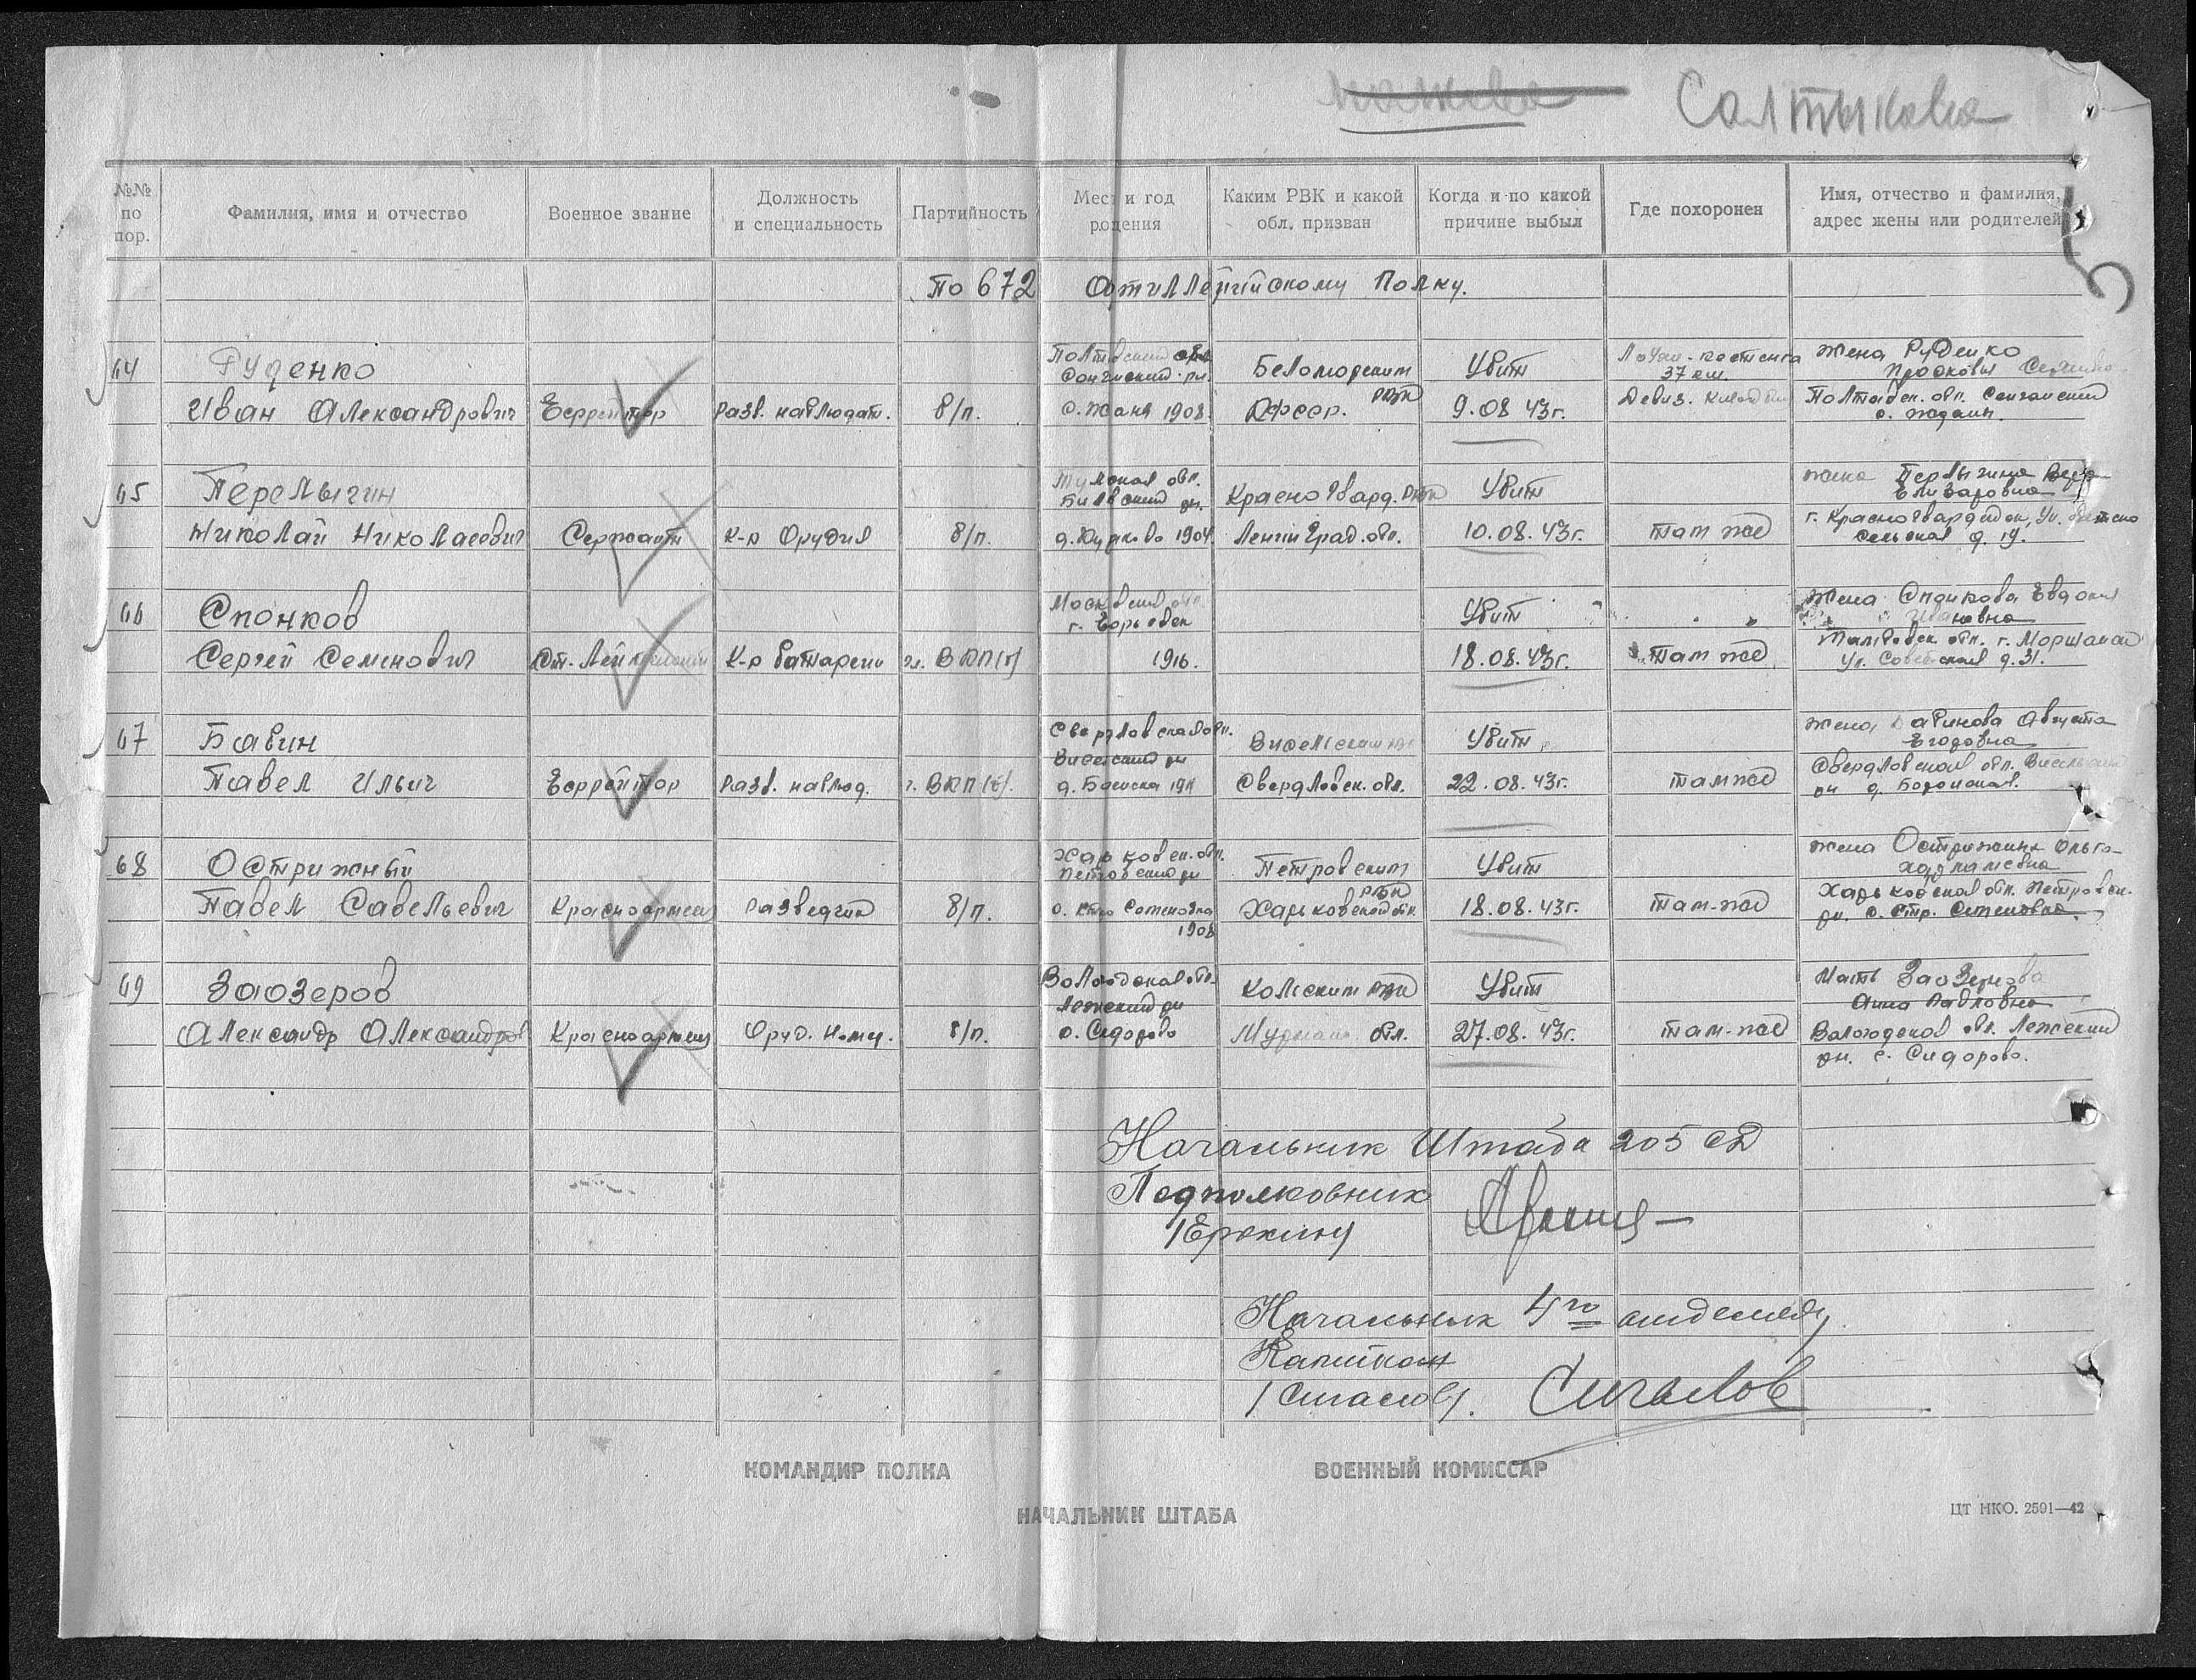 Салтыкова
5
№№ по пор.
Фамилия, имя и отчество
Военное звание
Должность и специальность
Партийность
Мест и год родения
Каким РВК и какой обл. призван
Когда и по какой причине выбыл
Где похоронен
Имя, отчество и фамилия, адрес жены или родителей
По 672 Артиллерийскому Полку.
64
Руденко
Иван Александрович
Ефрейтор
Разв. наблюдат.
б/п.
1908
Беломорским РВК
КФССР.
Убит
9.08 43г.
37 км.
Жена Руденко
65
Перелыгин
Николай Николаевич
Сержант
К-р Орудия
б/п.
Тульская обл.
1904
Красногвард. РВК
Ленинград. обл.
Убит
10.08.43г.
Там же
Елизаровна
сельская д. 19.
66
Спонков
Сергей Семенович
Ст. Лейтенант
К-р батареи
чл. ВКП(б)
Московская обл.
г. Егорьевск
1916.
Убит
18.08.43г.
Там же
Жена Спонкова Евдокия
Ивановна
Тамбовск. обл. г. Моршанск
Ул. Советская д. 31.
67
Бабин
Павел Ильич
Ефрейтор
Разв. наблюд.
ч. ВКП(б).
Свердловская обл.
Свердловск. обл.
Убит
22.08.43г.
там же
Егоровна
68
Острижный
Павел Савельевич
Красноармеец
Разведчик
б/п.
Харьковск. обл.
Петровский рн
1908
Петровским РВК
Харьковской обл
Убит
18.08.43г.
Там-же
Жена Острижная Ольга
Харьковская обл. Петровск.
рн. с. Стр. Семеновка
69
Заозеров
Александр Александров
Красноармеец
Оруд. Номер.
б/п.
Вологодская обл.
Лежский рн
с. Сидорово
Кольским РВК
Мурманс обл.
Убит
27.08.43г.
там-же
Мать Заозерова
Анна Павловна
Вологодская обл. Лежский
рн. с. Сидорово.
Начальник Штаба 205 сд
Подполковник
/Ерохин/
Начальник 4го отделения
Капитан
/Сигалов/. Сигалов
КОМАНДИР ПОЛКА
ВОЕННЫЙ КОМИССАР
НАЧАЛЬНИК ШТАБА
ЦТ НКО. 2591—42